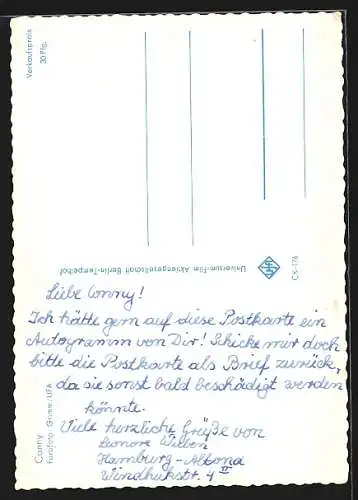 Verkaufspreis
30 Pfg.
Universum-Film Aktiengesellschaft Berlin-Tempelhof
UFA
CK-176
Liebe Conny!
Ich hätte gern auf diese Postkarte ein
Autogramm von Dir! Schicke mir doch
bitte die Postkarte als Brief zurück,
da sie sonst bald beschädigt werden
könnte.
Viele herzliche Grüße von
Leonore
Hamburg-Altona
Windhukstr. 4 II
Conny
Farbfoto Grimm/UFA